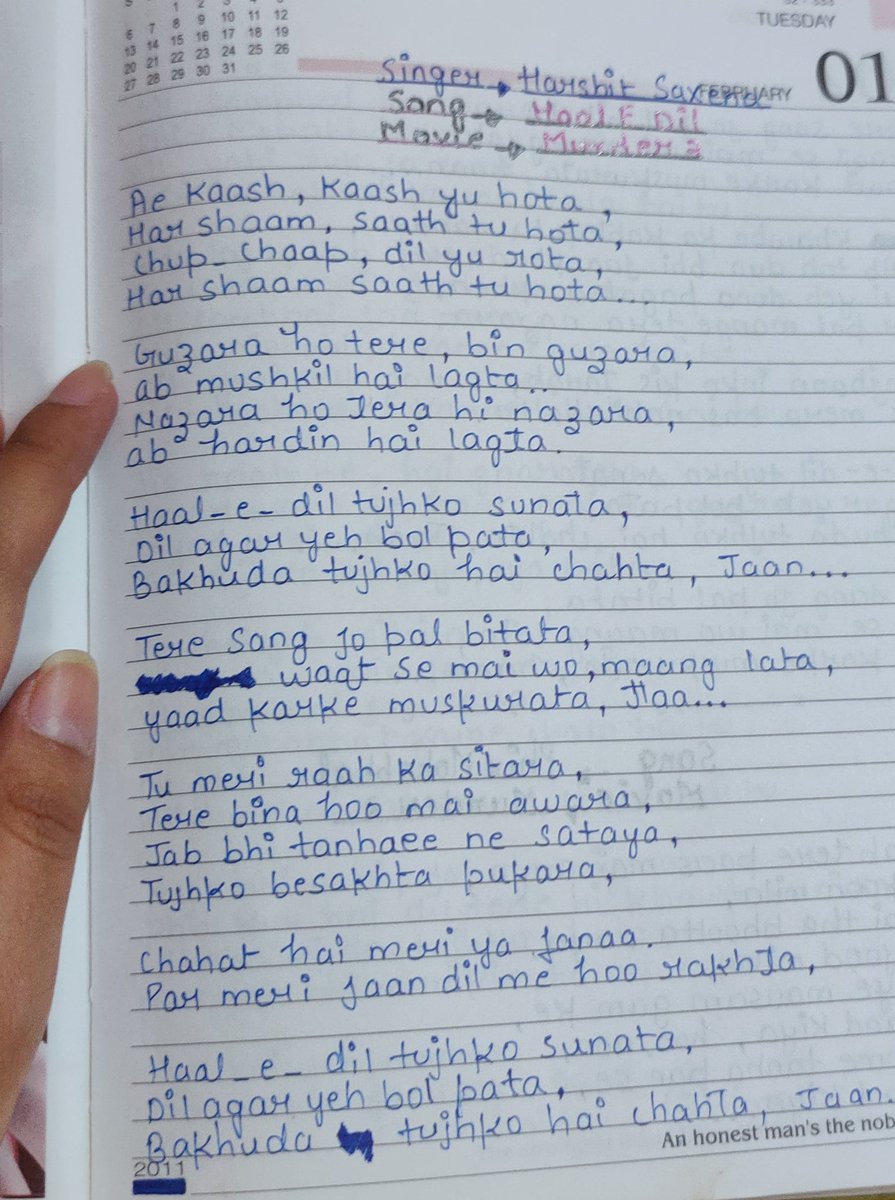 1 2 3 4 5
6 7 8 9 10 11 12
13 14 15 16 17 18 19
20 21 22 23 24 25 26
27 28 29 30 31
TUESDAY
FEBRUARY 01
Singer → Harshit Saxena
Song → Haal E Dil
Movie → Murder 2
Ae Kaash, Kaash yu hota,
Har shaam, saath tu hota,
Chup-Chaap, dil yu rota,
Har shaam saath tu hota...
Guzara ho tere, bin guzara,
ab mushkil hai lagta..
Nazara ho Tera hi nazara,
ab hardin hai lagta.
Haal-e-dil tujhko sunata,
Dil agar yeh bol pata,
Bakhuda tujhko hai chahta, Jaan...
Tere Sang jo pal bitata,
waqt se mai wo, maang lata,
yaad karke muskurata, Haa...
Tu meri raah ka sitara,
Tere bina hoo mai awara,
Jab bhi tanhaee ne sataya,
Tujhko besakhta pukara,
Chahat hai meri ya fanaa.
Par meri jaan dil me hoo rakhta,
Haal-e-dil tujhko sunata,
Dil agar yeh bol pata,
Bakhuda tujhko hai chahta, Jaan.
An honest man's the nob
2011